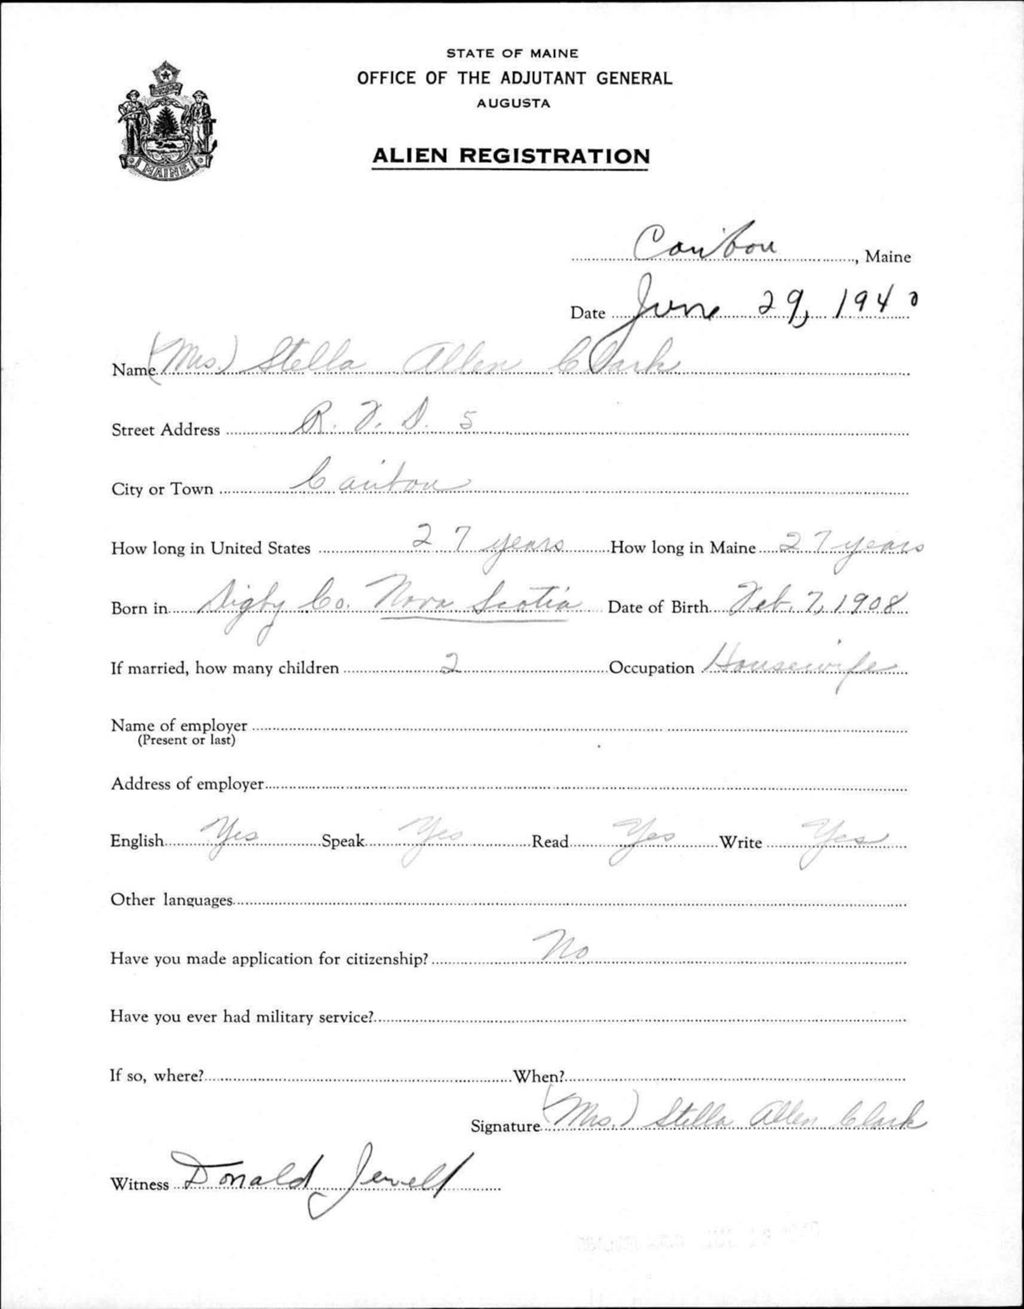 STATE OF MAINE
OFFICE OF THE ADJUTANT GENERAL
AUGUSTA
MAINE
ALIEN REGISTRATION
Caribou, Maine
Date June 29, 1940
Name (Mrs.) Stella Allen Clark
Street Address R. F. D. 5
City or Town Caribou
How long in United States 27 years How long in Maine 27 years
Born in Digby Co. Nova Scotia Date of Birth Feb. 7, 1908
If married, how many children 2 Occupation Housewife
Name of employer
(Present or last)
Address of employer
English Yes Speak Yes Read Yes Write Yes
Other languages
Have you made application for citizenship? No
Have you ever had military service?
If so, where? When?
Signature (Mrs.) Stella Allen Clark
Witness Donald Jewell